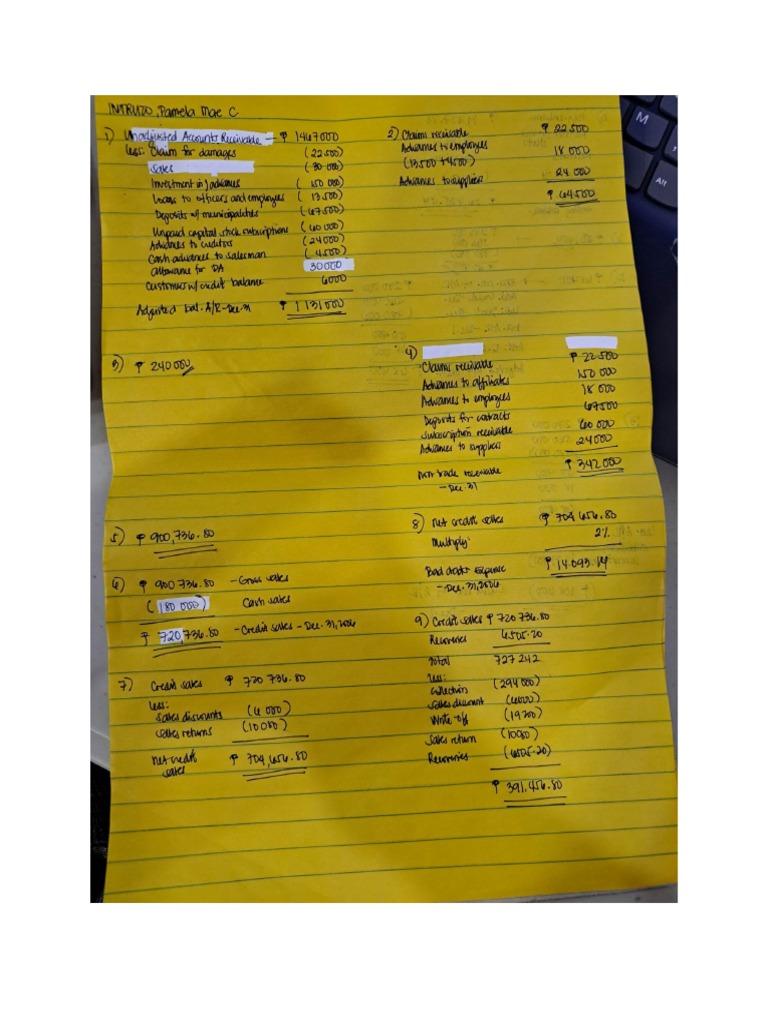 INTRUZO, Pamela Mae C
1) Unadjusted Accounts Receivable - ₱ 1467000
less: Claim for damages (22 500)
Sales (30 000)
Investment in / advances (150 000)
Loans to officers and employees (13 500)
Deposits w/ municipalities (67500)
Unpaid capital stock subscriptions (60 000)
Advances to creditors (24000)
Cash advances to salesman (4500)
allowance for DA 30000
Customers w/ credit balance 6000
Adjusted bal. A/R - Dec. 31 ₱ 1 131 000
2) Claims receivable ₱ 22 500
Advances to employees 18 000
(13 500 + 4500)
Advances to suppliers 24 000
₱ 64500
3) ₱ 240 000
4)
Claims receivable ₱ 22 500
Advances to affiliates 150 000
Advances to employees 18 000
Deposits for contracts 67500
subscription receivable 60 000
Advances to suppliers 24000
Non trade receivable ₱ 342 000
- Dec. 31
5) ₱ 900,736.80
6) ₱ 900 736.80 - Gross sales
(180 000) Cash sales
₱ 720,736.80 - Credit sales - Dec. 31, 2006
7) Credit sales ₱ 720 736.80
less:
sales discounts (6 000)
sales returns (10080)
net credit ₱ 704,656.80
sales
8) Net credit sales ₱ 704 656.80
Multiply: 2%
Bad debt expense ₱ 14 093.14
- Dec. 31, 2006
9) Credit sales ₱ 720 736.80
Recoveries 6505.20
Total 727 242
less:
Collection (294 000)
Sales discount (6000)
Write-off (19 200)
Sales return (10080)
Recoveries (6505.20)
₱ 391,456.80
M
Alt